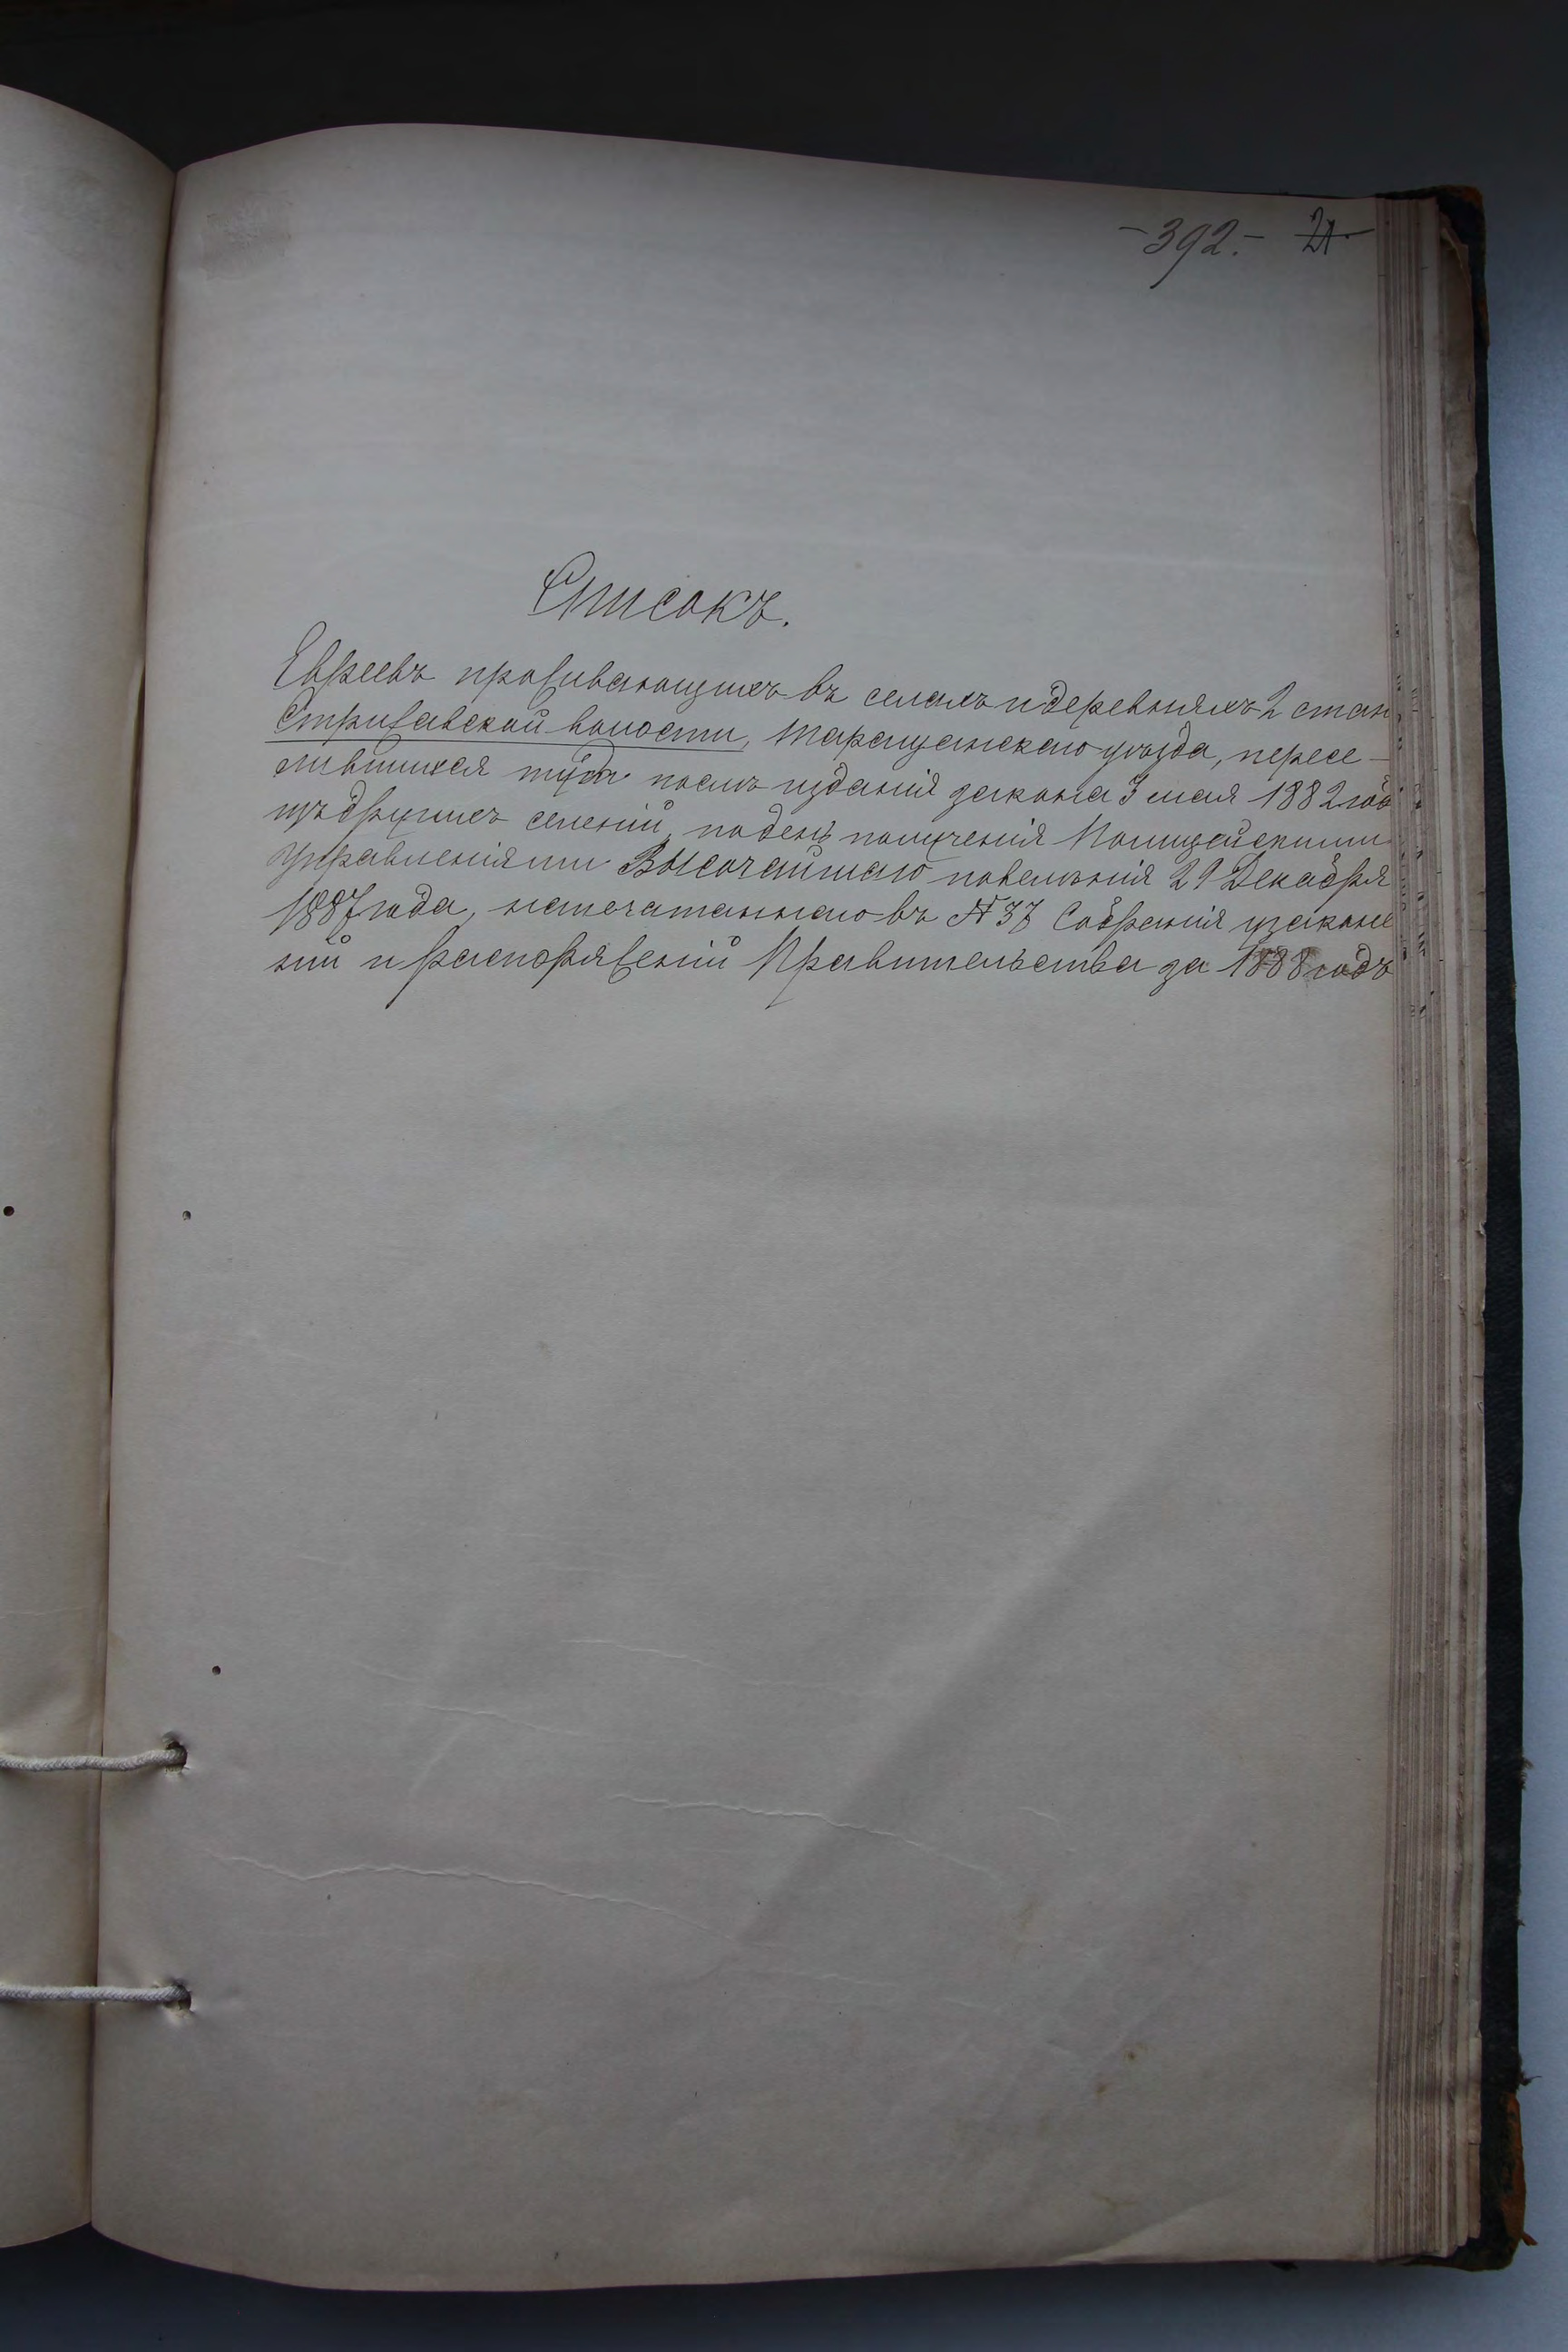 -392.- 21.
Списокъ.
Евреевъ проживающихъ въ селахъ и деревняхъ 2 стан
Стрижавской волости, Таращанскаго уѣзда, пересе-
лившихся туда послѣ изданія закона 3 мая 1882 год
изъ другихъ селеній, по день полученія Полицейскими
Управленіями Высочайшаго повелѣнія 29 Декабря
1887 года, напечатаннаго въ № 37 Собранія узаконе
ній и распоряженій Правительства за 1888 годъ